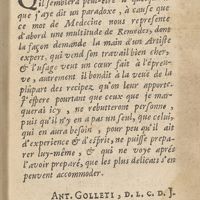 Il semblera peut-être à quelqu'un
que j'aye dit un paradoxe, à cause que
ce mot de Medecine nous represente
d'abord une multitude de Remedes, dont
la façon demande la main d'un Artiste
expert, qui vend son travail bien cher,
& l'usage veut un cœur fait à l'épreu-
ve, autrement il bondit à la veuë de la
plupart des recipez qu'on leur apporte.
J'espere pourtant que ceux que je mar-
querai icy, ne rebutteront personne,
puis qu'il n'y en a pas un seul, que celui,
qui en aura besoin, pour peu qu'il ait
d'experience & d'esprit, ne puisse prepa-
rer luy-même, & qui ne voye aprés
l'avoir preparé, que les plus delicats s'en
peuvent accommoder.
ANT. GOLLETI, D. L. C. D. J.